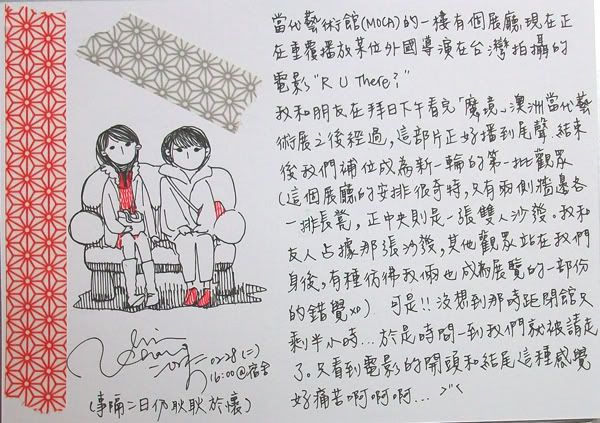 當代藝術館(MOCA)的一樓有個展廳現在正
在重覆播放某位外國導演在台灣拍攝的
電影"R U There?"
我和朋友在拜日下午看完「魔境」澳洲當代藝
術展之後經過,這部片正好播到尾聲.結束
後我們補位成為新一輪的第一批觀眾
(這個展廳的安排很奇特,只有兩側牆邊各
一排長凳,正中央則是一張雙人沙發。我和
友人占據那張沙發,其他觀眾站在我們
身後,有種彷彿我倆也成為展覽的一部份
的錯覺xD) 可是!!沒想到那時距閉館只
剩半小時...於是時間一到我們就被請走
了。只看到電影的開頭和結尾這種感覺
好痛苦啊啊啊...
02-28(二)
16:00@宿舍
(事隔二日仍耿耿於懷)